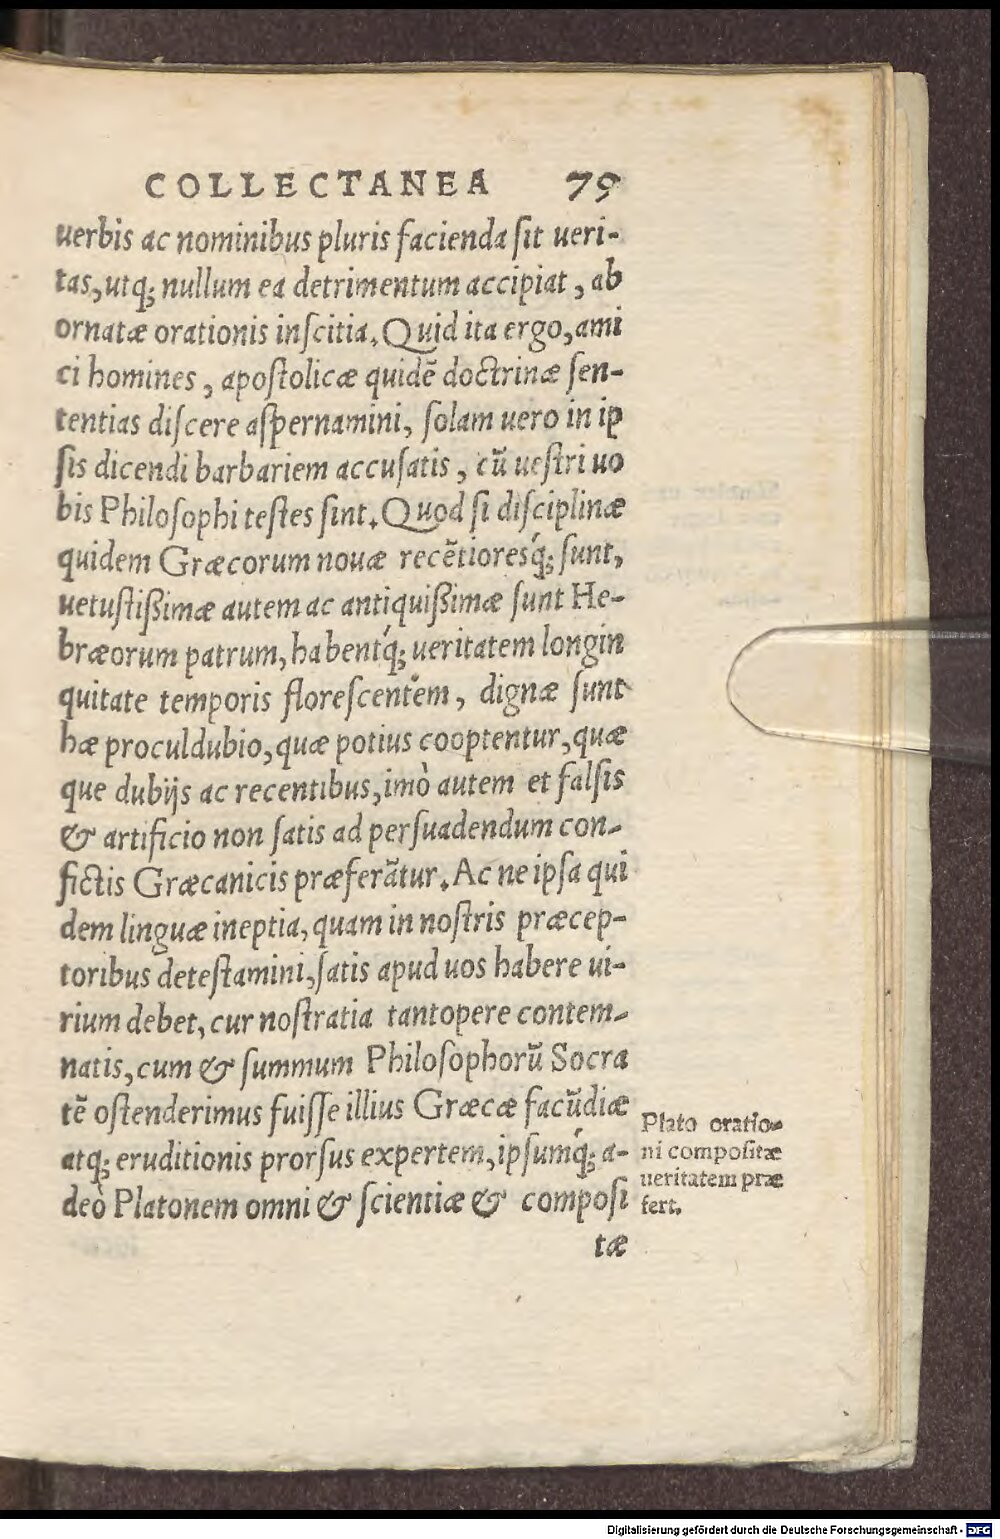 COLLECTANEA 79
uerbis ac nominibus pluris facienda ſit ueri-
tas, utq; nullum ea detrimentum accipiat, ab
ornatæ orationis inſcitia. Quid ita ergo, ami
ci homines, apoſtolicæ quidē doctrinæ ſen-
tentias diſcere aſpernamini, ſolam uero in ip
ſis dicendi barbariem accuſatis, cū ueſtri uo
bis Philoſophi teſtes ſint. Quod ſi diſciplinæ
quidem Græcorum nouæ recētioresq́; ſunt,
uetuſtißimæ autem ac antiquißimæ ſunt He-
bræorum patrum, habentq́; ueritatem longin
quitate temporis floreſcentem, dignæ ſunt
hæ proculdubio, quæ potius cooptentur, quæ
que dubijs ac recentibus, imò autem et falſis
& artificio non ſatis ad perſuadendum con-
fictis Græcanicis præferātur. Ac ne ipſa qui
dem linguæ ineptia, quam in noſtris præcep-
toribus deteſtamini, ſatis apud uos habere ui-
rium debet, cur noſtratia tantopere contem-
natis, cum & ſummum Philoſophorū Socra
tē oſtenderimus fuiſſe illius Græcæ facūdiæ
atq; eruditionis prorſus expertem, ipſumq́; a-
deò Platonem omni & ſcientiæ & compoſi
tæ
Plato oratio-
ni compoſitæ
ueritatem præ
fert.
Digitalisierung gefördert durch die Deutsche Forschungsgemeinschaft - DFG